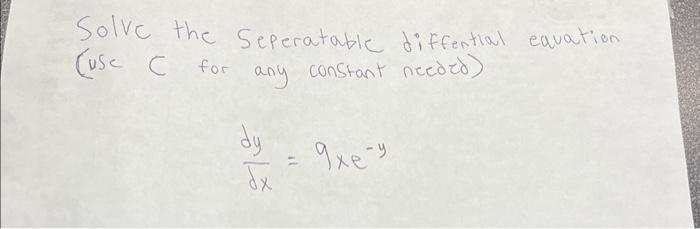 Solve the Seperatable diffential equation
(use C for any constant needed)
dy/dx = 9xe^-y